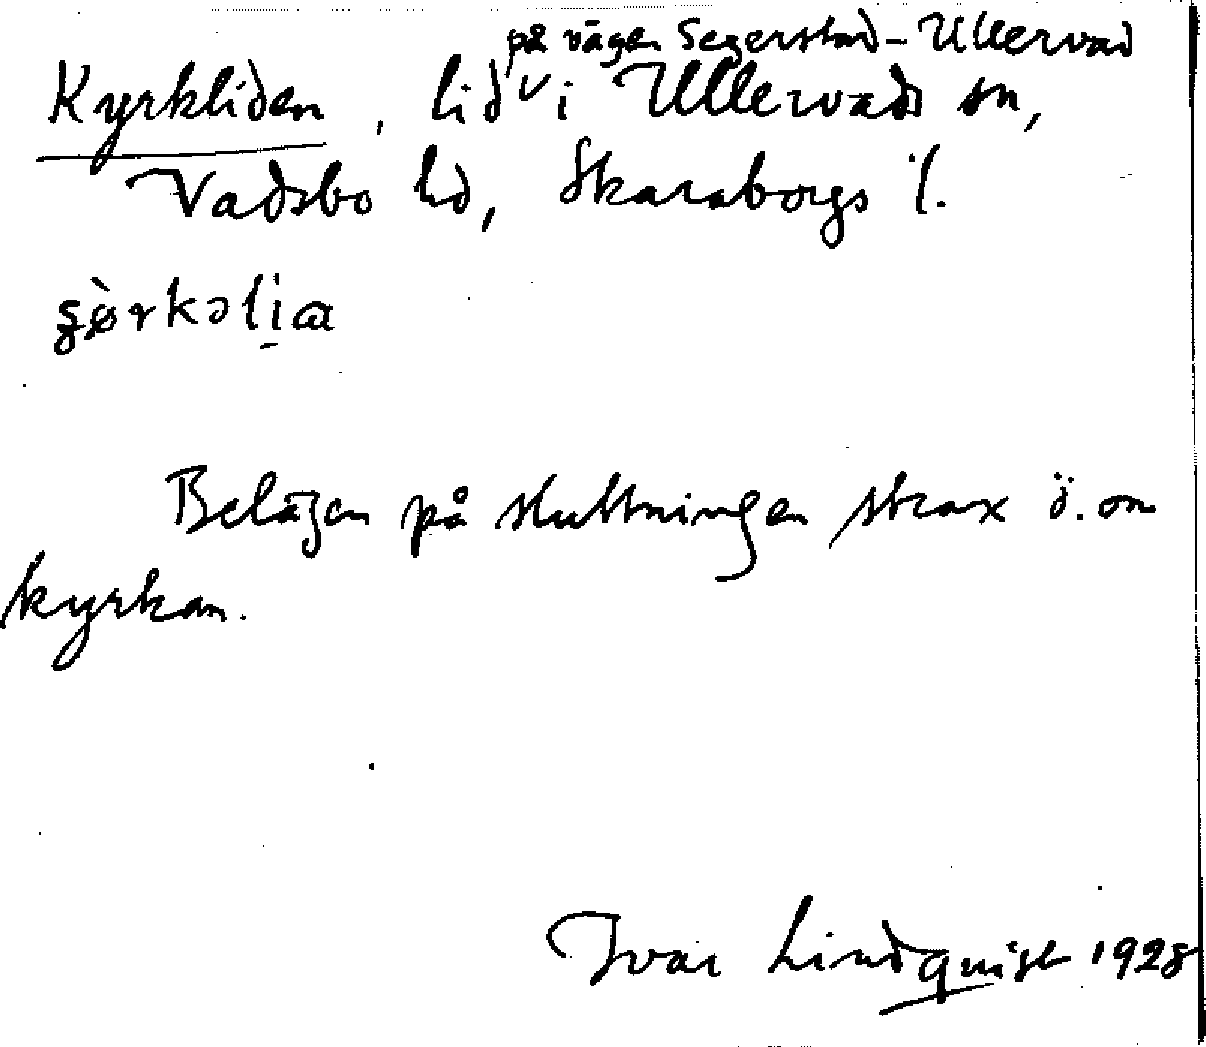 på vägen Segerstad - Ullervad
Kyrkliden, lid v i Ullervads sn,
Vadsbo hd, Skaraborgs l.
Belägen på sluttningen strax ö. om
kyrkan.
Ivar Lindquist 1928